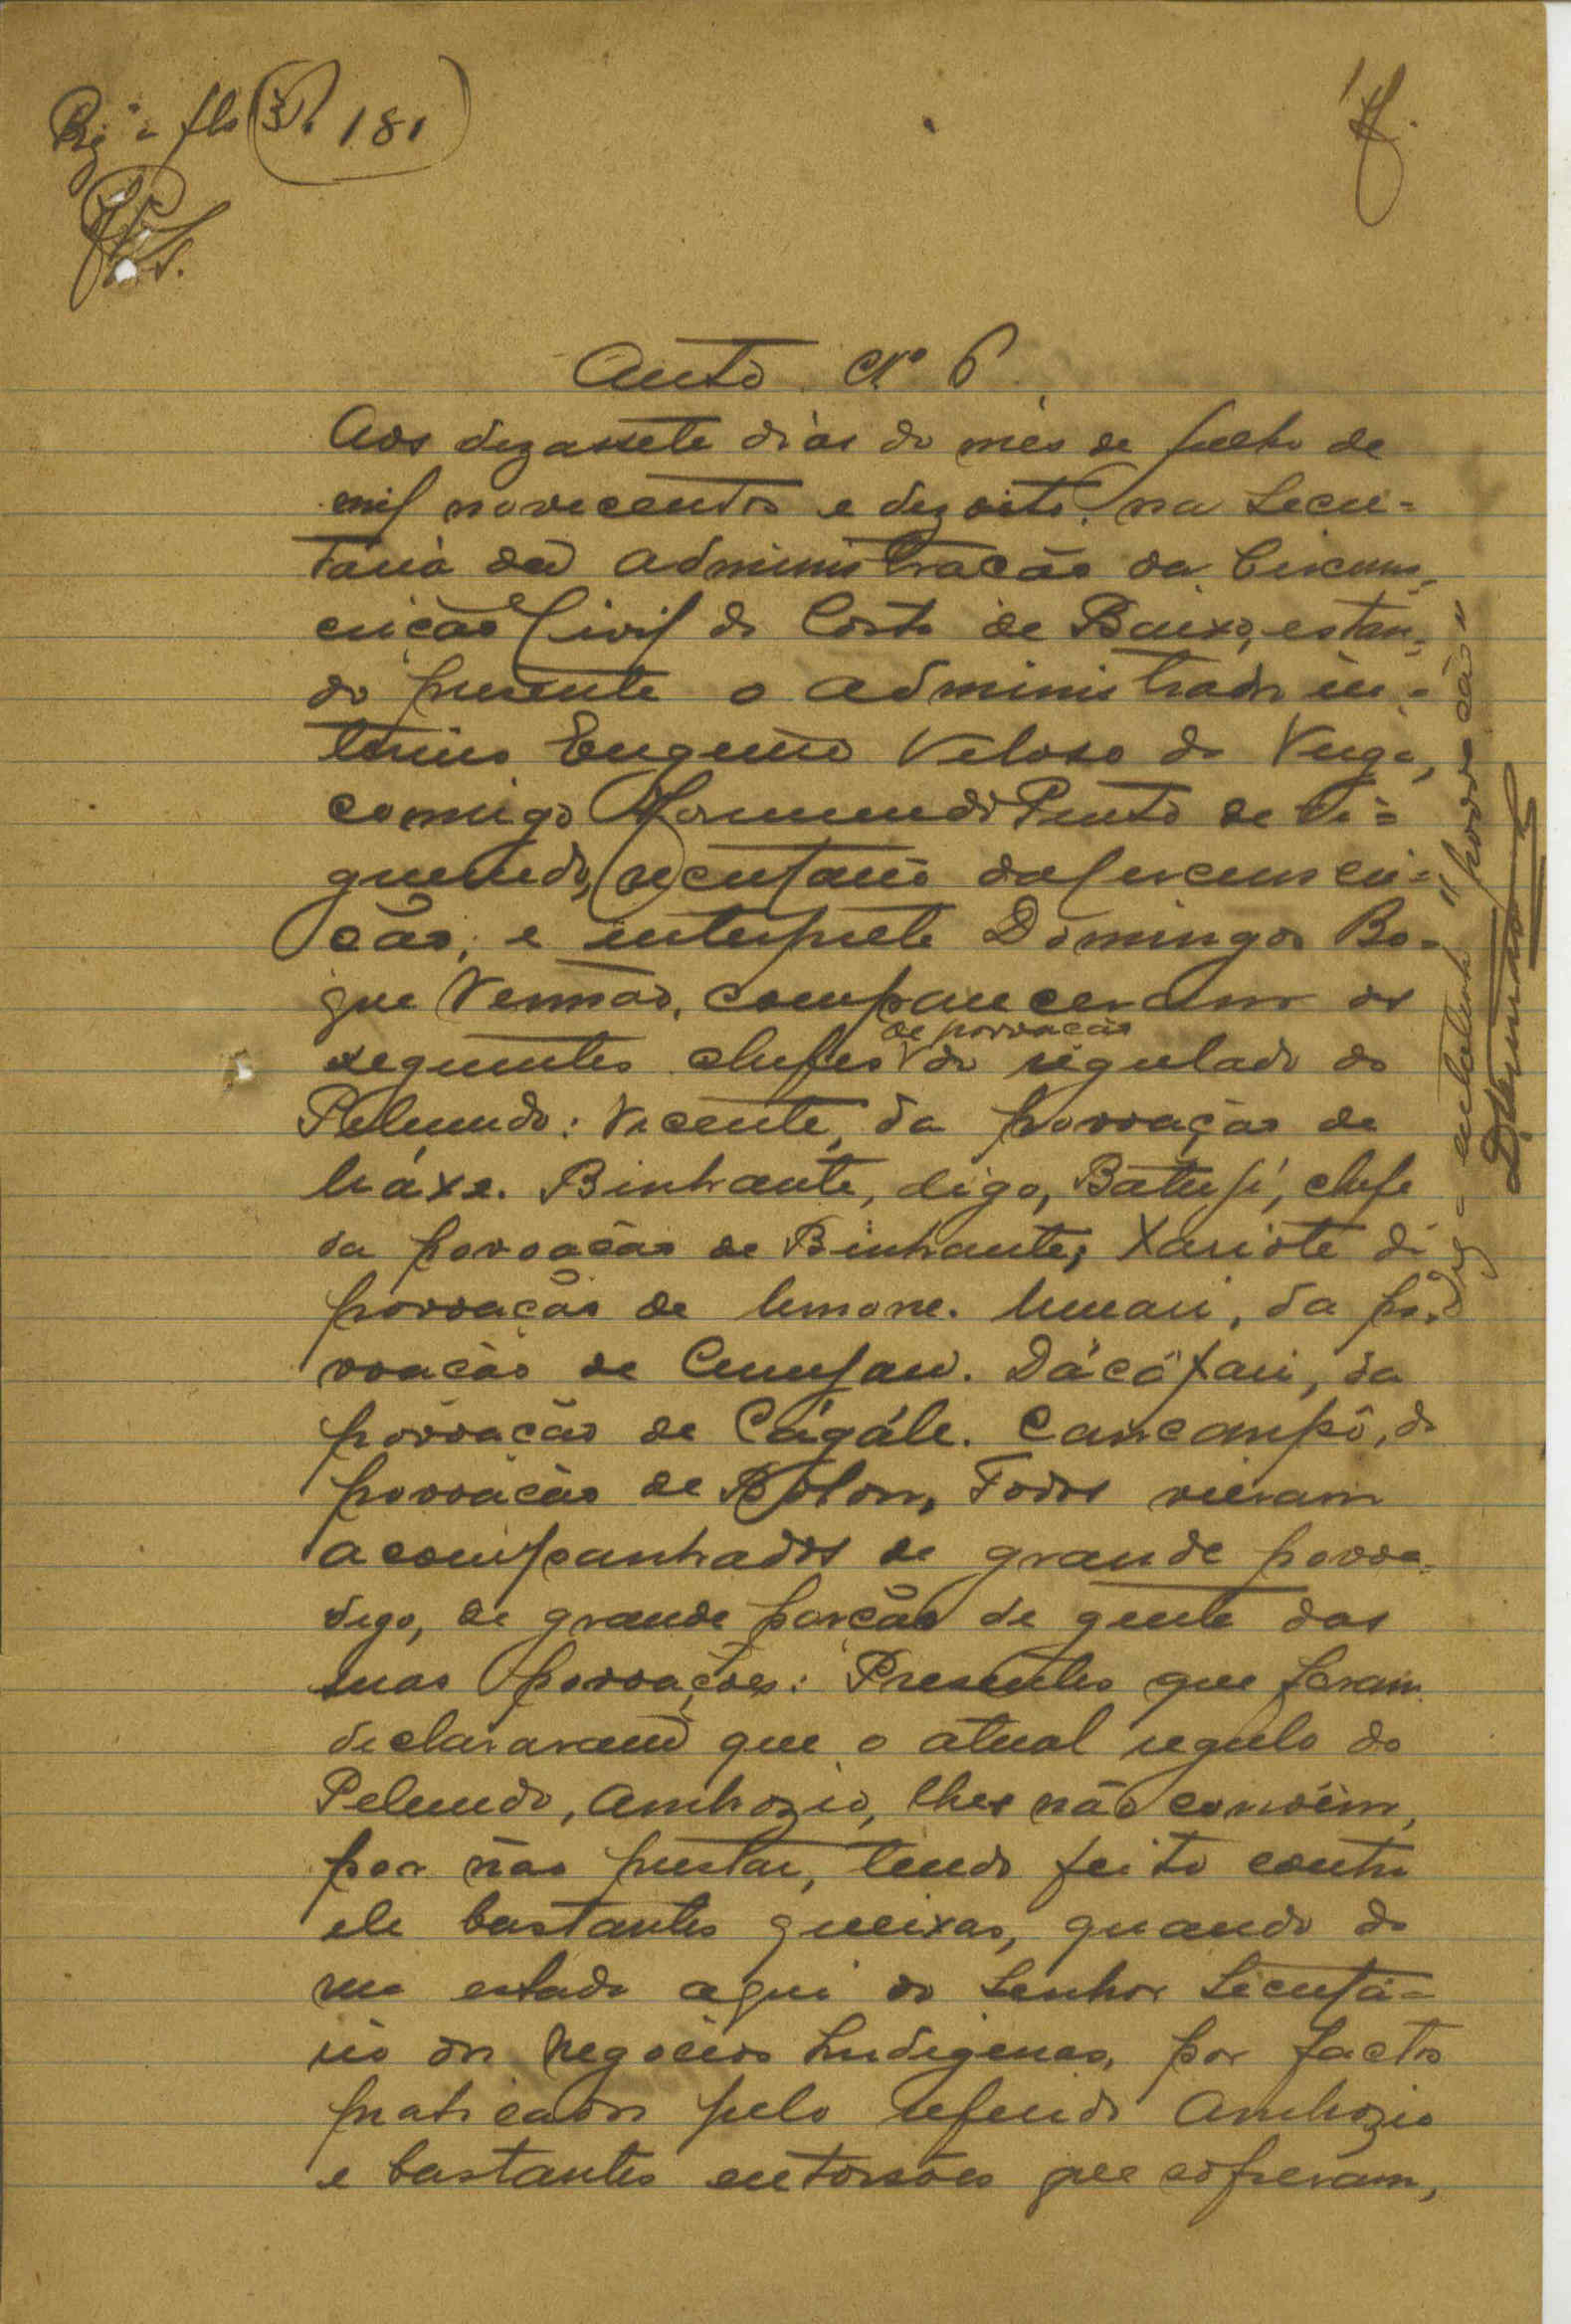 Auto Nº 6
Aos dezassete dias do mês de julho de
mil novecentos e dezoito, na Secre-
taria da Administracão da Circuns-
crição Civil do Costa de Baixo, estan-
do presente o administrador in-
terino Eugenio Veloso da Veiga,
comigo Pinto de Fi-
gueiredo, secretario da circunscri-
ção, e interprete Domingos Bo-
que compareceram os
seguintes chefes de povoação do regulado do
Pelundo: Vicente, da povoação de
Binhante, digo, Batufi, chefe
da povoação de Binhante; Xariote da
povoação de da po-
voação de da
povoação de Cágále. Cancampô, da
povoação de Bolom, Todos vieram
acompanhados de grande povoa-
digo, de grande porção de gente das
suas povoações: Presentes que foram
declararam que o atual regulo do
Pelundo, Ambrozio, lhes não convém,
por não prestar, tendo feito contra
ele bastantes queixas, quando da
estada aqui do Senhor Secretá-
rio dos Negocios Indigenas, por factos
praticados pelo referido Ambrozio
e bastantes extorsões que sofreram,
Digo entrelinha "povoação"